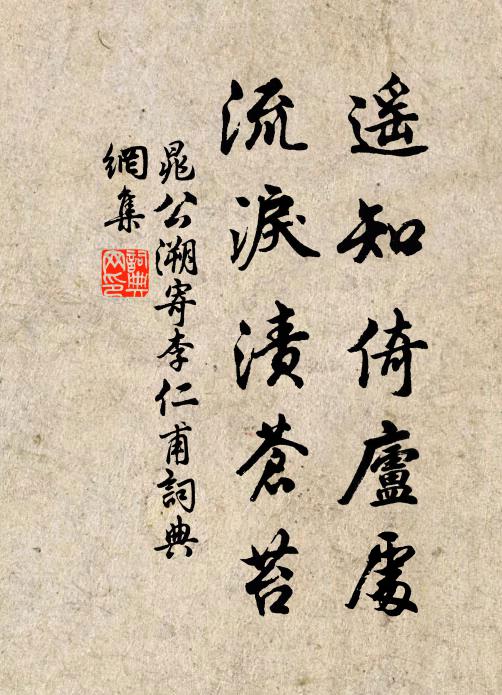 遥知倚廬處
流淚漬蒼苔
晁公溯寄李仁甫詞典
網集
詞典
网印